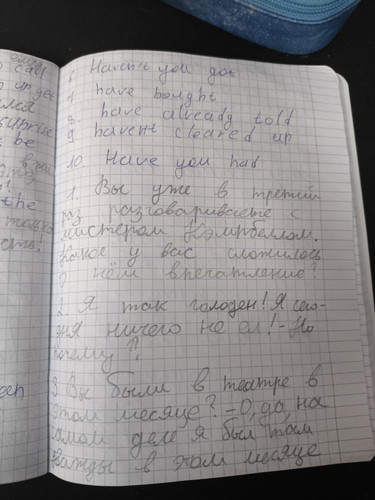 call
6. Haven't you got
7. have bought
8. have already told
9. haven't cleared up
10. Have you had
1. Вы уже в третий
раз разговариваете с
мистером Кэмрбеллом.
Какое у вас сложилось
о нём впечатление?
2. Я так голоден! Я сего-
дня ничего не ел! - Но
почему?
3 Вы были в театре в
этом месяце? - О, да, на
самом деле я был там
дважды в этом месяце
be
the
только